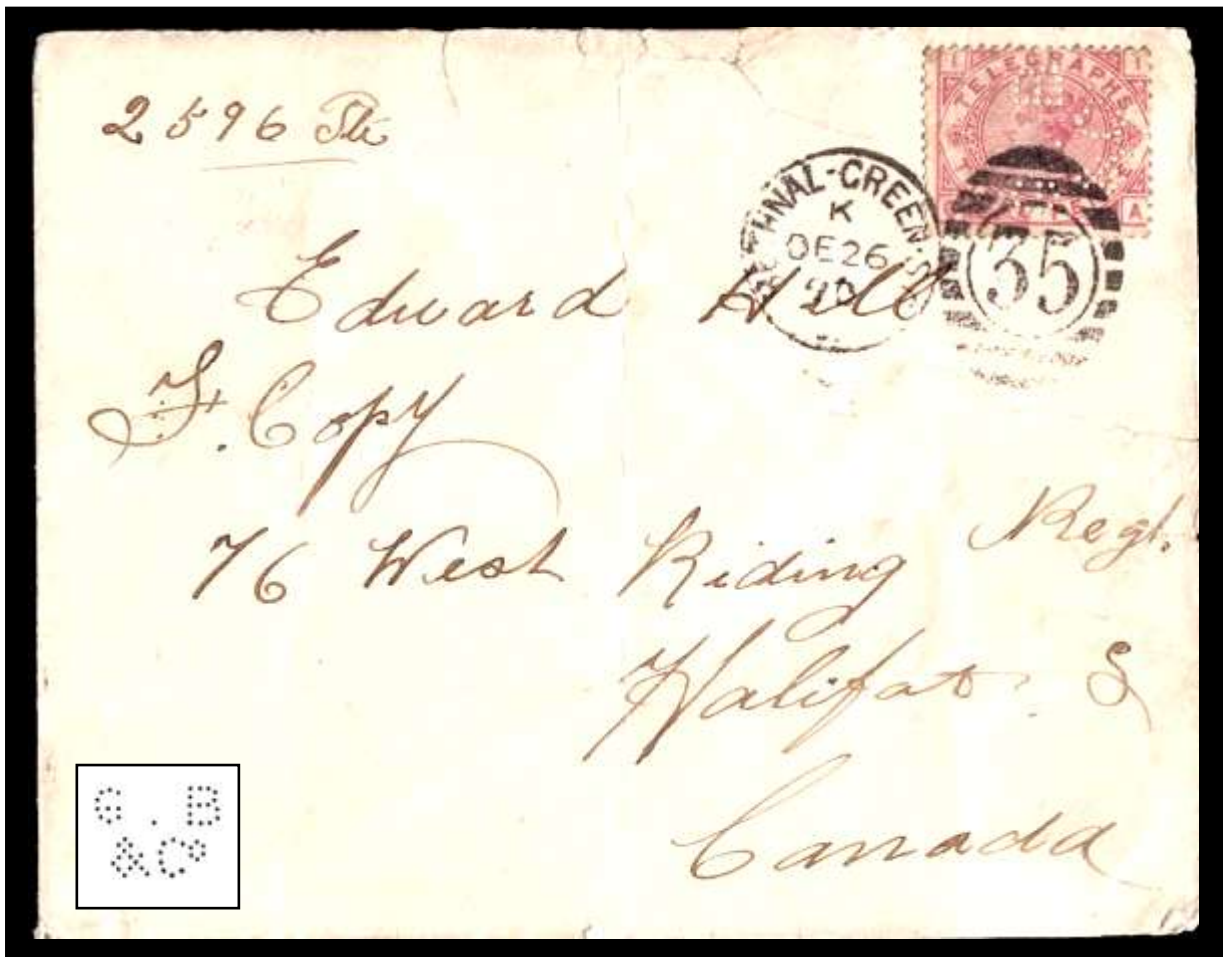 2596 Pte
TELEGRAPHS
I
A
BETHNAL-GREEN
K
DE 26
90
35
Edward Hill
F. Copy
76 West Riding Regt.
Halifax S
Canada
G . B
& Co